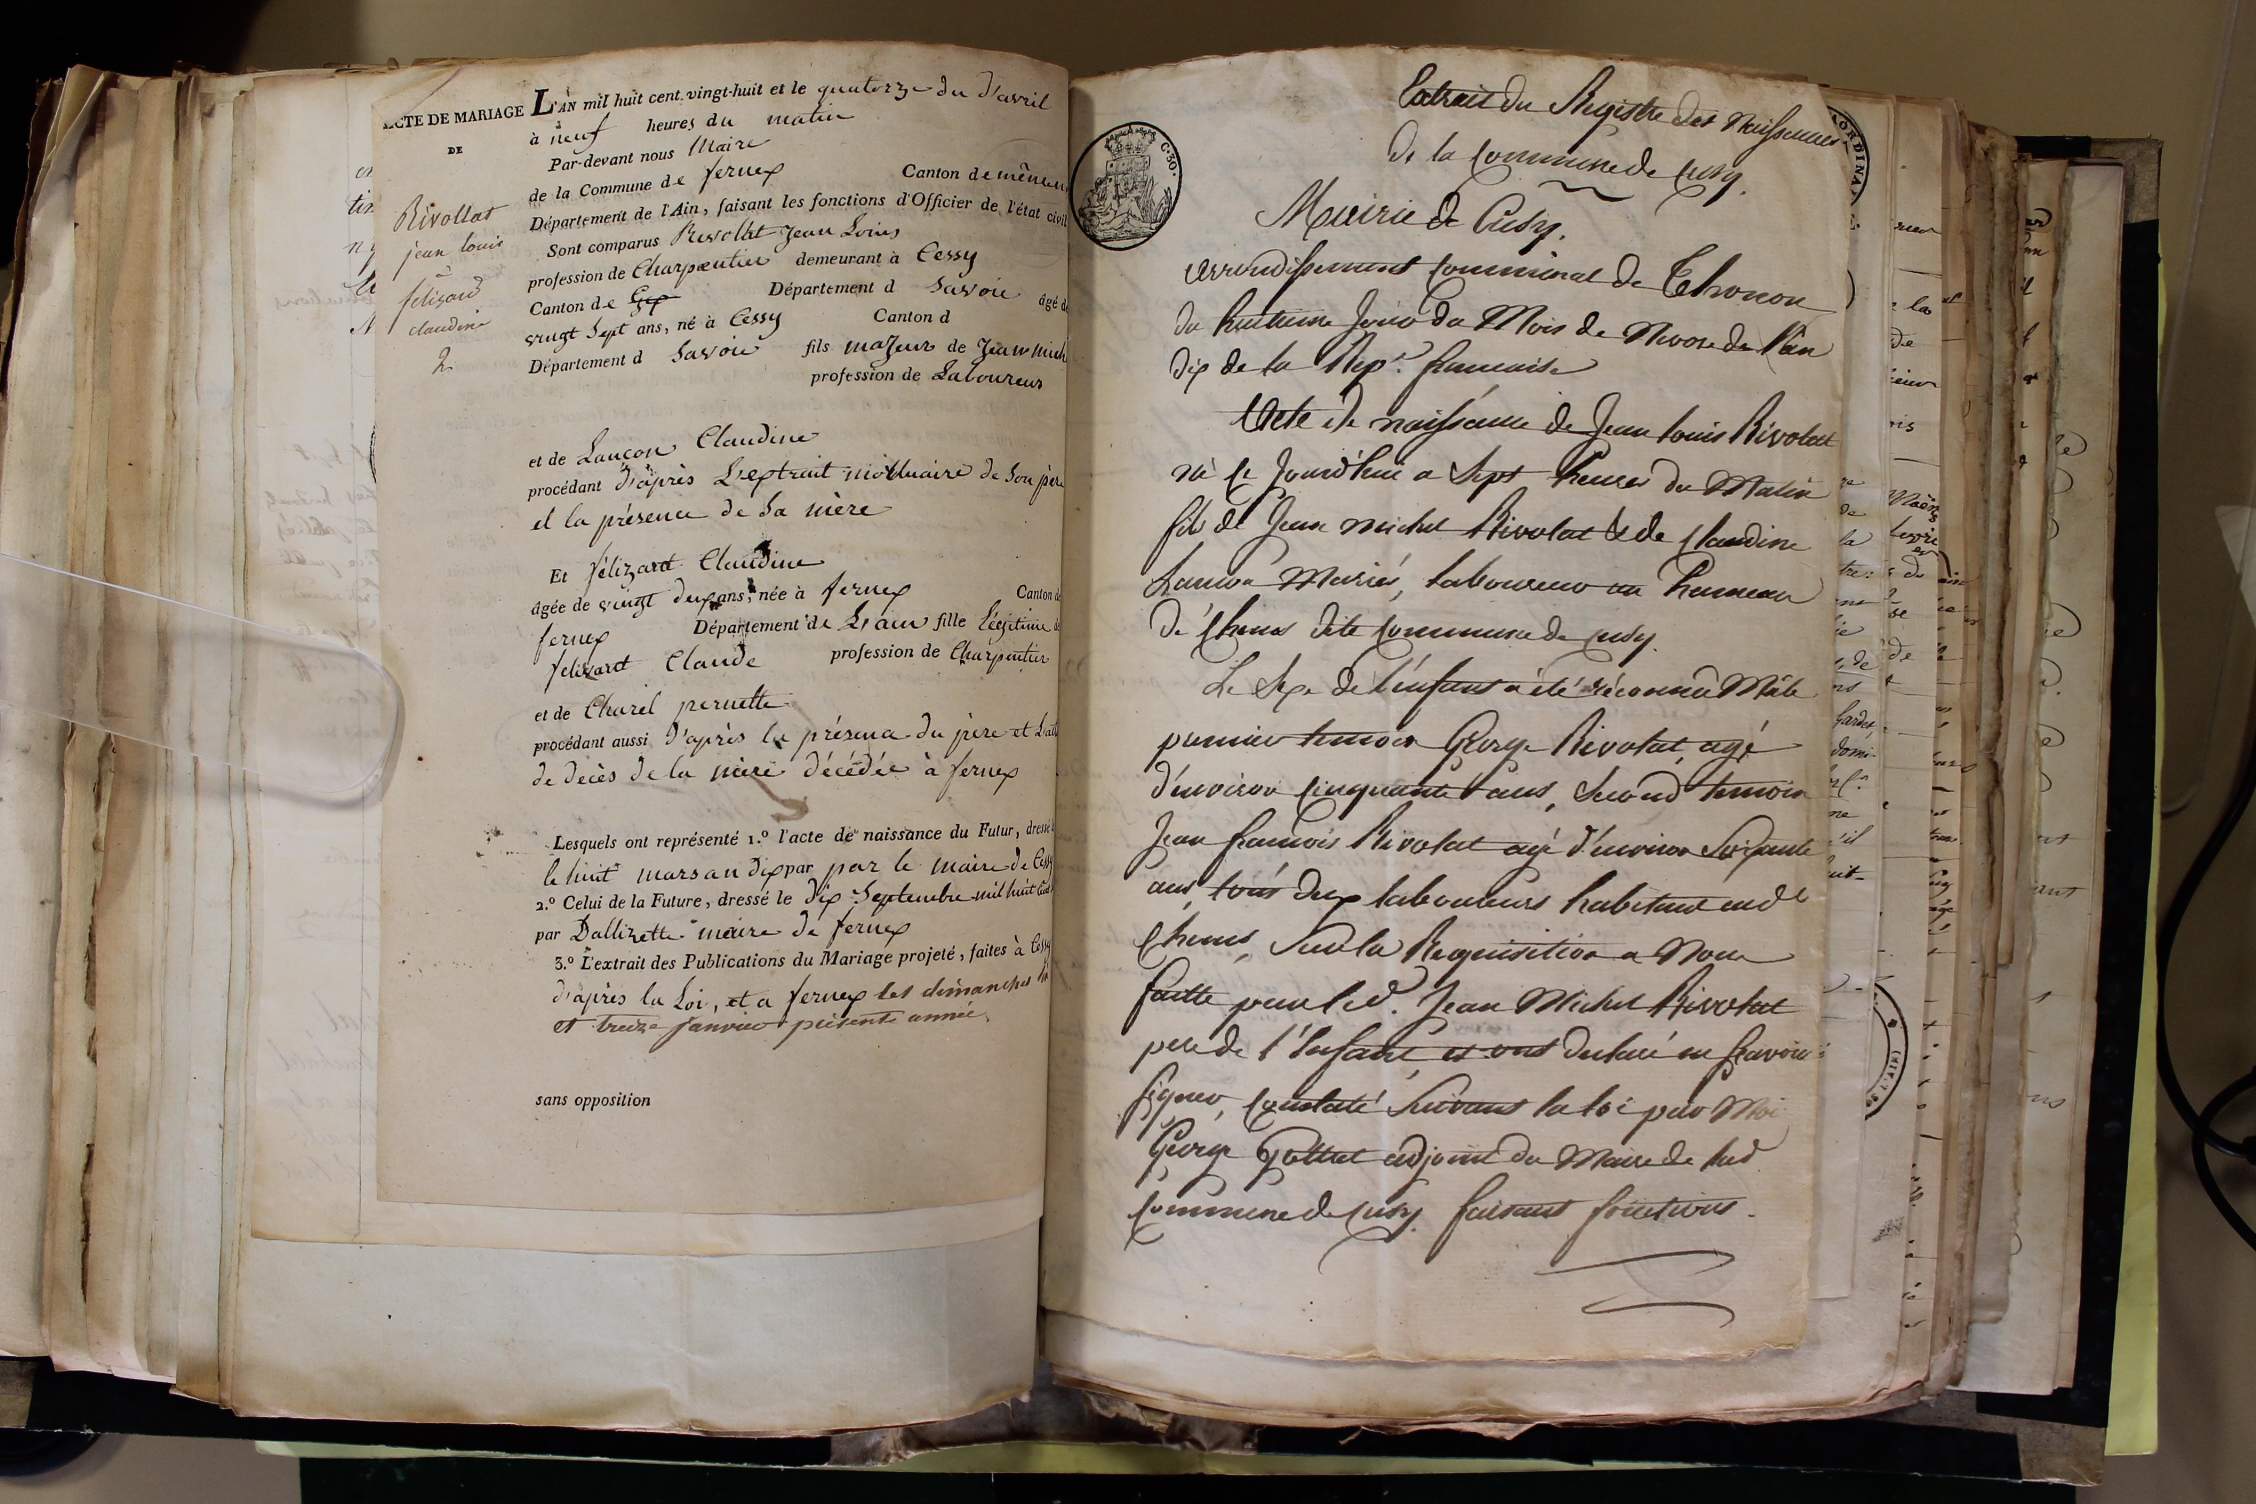 ACTE DE MARIAGE
DE
Rivollat
jean louis
&
felizard
claudine
2
L'AN mil huit cent vingt-huit et le quatorze du d'avril
à neuf heures du matin
Par-devant nous Maire
de la Commune de fernex Canton de même
Département de l'Ain, faisant les fonctions d'Officier de l'état civil
Sont comparus Rivollat Jean Louis
profession de Charpentier demeurant à Cessy
Canton de Gex Département d Savoie âgé de
vingt Sept ans, né à Cessy Canton d
Département d Savoie fils majeur de Jean mich
profession de Laboureur
et de Lançon Claudine
procédant d'après L'extrait mortuaire de Son père
et la présence de Sa mère
Et félizard Claudine
âgée de vingt deux ans, née à fernex Canton de
fernex Département de L'ain fille légitime de
felizard Claude profession de Charpentier
et de Charel pernette
procédant aussi d'après la présence du père et L'
de décès de la mère décédée à fernex
Lesquels ont représenté 1.º l'acte de naissance du Futur, dressé
le huit mars an dix par par le maire de Cessy
2.º Celui de la Future, dressé le dix Septembre mil huit Cent
par Dallizette maire de fernex
3.º L'extrait des Publications du Mariage projeté, faites à Cessy
d'après la Loi, et a fernex les dimanches
et treize janvier présente année,
sans opposition
C. 30.
Extrait du Registre des Naissances
de la Commune de Cusy.
Mairie de Cusy.
arrondissement Communal de Thonon
du huitieme Jour du Mois de Nivose de l'an
dix de la Rep.e francaise
Acte de naissance de Jean Louis Rivolat
né le Jourd'hui a Sept heures du Matin
fils de Jean michel Rivolat & de Claudine
Lançon Mariés, laboureur au hameau
de Chenes dite Commune de Cusy.
Le Sexe de l'enfant a été réconnu Mâle
premier temoin George Rivolat, agé
d'environ Cinquante ans, Second temoin
Jean francois Rivolat agé d'environ Soixante
ans, tous deux laboureurs habitant aud.
Chenes, Sur la Requisition a Nous
faitte par led. Jean Michel Rivolat
pere de l'Enfant, et ont declaré ne Savoir
signer, Constaté Suivant la loi par Moi
George adjoint du Maire de lad
Commune de Cusy. faisant fonctions.